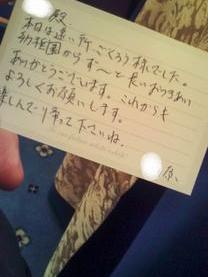 殿
本日は遠い所ごくろう様でした。
幼稚園からず〜と長いおつきあい
ありがとうございます。これからも
よろしくお願いします。
楽しんで帰って下さいね。